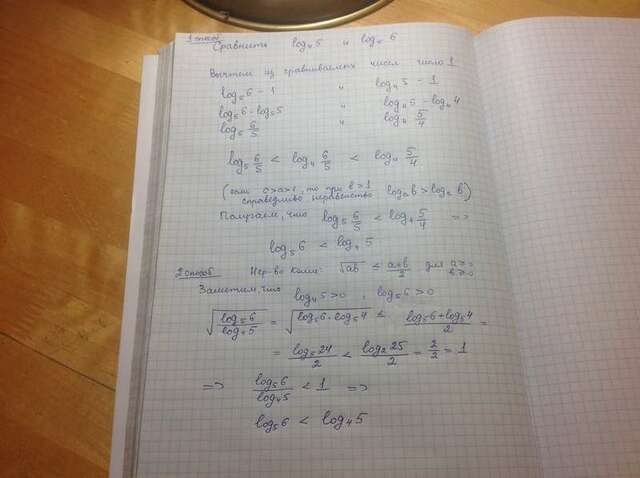 1 способ
Сравнить log₄5 и log₅6
Вычтем из сравниваемых чисел число 1
log₅6 - 1 и log₄5 - 1
log₅6 - log₅5 и log₄5 - log₄4
log₅ 6/5 и log₄ 5/4
log₅ 6/5 < log₄ 6/5 < log₄ 5/4
(если c>a>1, то при b>1
справедливо неравенство logₐb > log꜀b)
Получаем, что log₅ 6/5 < log₄ 5/4 =>
log₅6 < log₄5
2 способ Нер-во Коши: √ab ≤ (a+b)/2 для a≥0 b≥0
Заметим, что log₄5>0, log₅6>0
√(log₅6/log₄5) = √(log₅6·log₅4) ≤ (log₅6+log₅4)/2 =
= log₅24/2 < log₅25/2 = 2/2 = 1
=> log₅6/log₄5 < 1 =>
log₅6 < log₄5